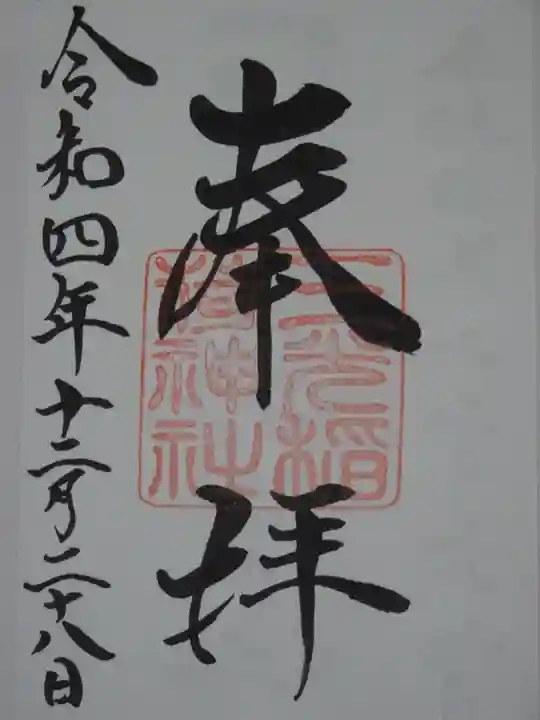 奉拝
三光稲荷神社
令和四年十二月二十八日